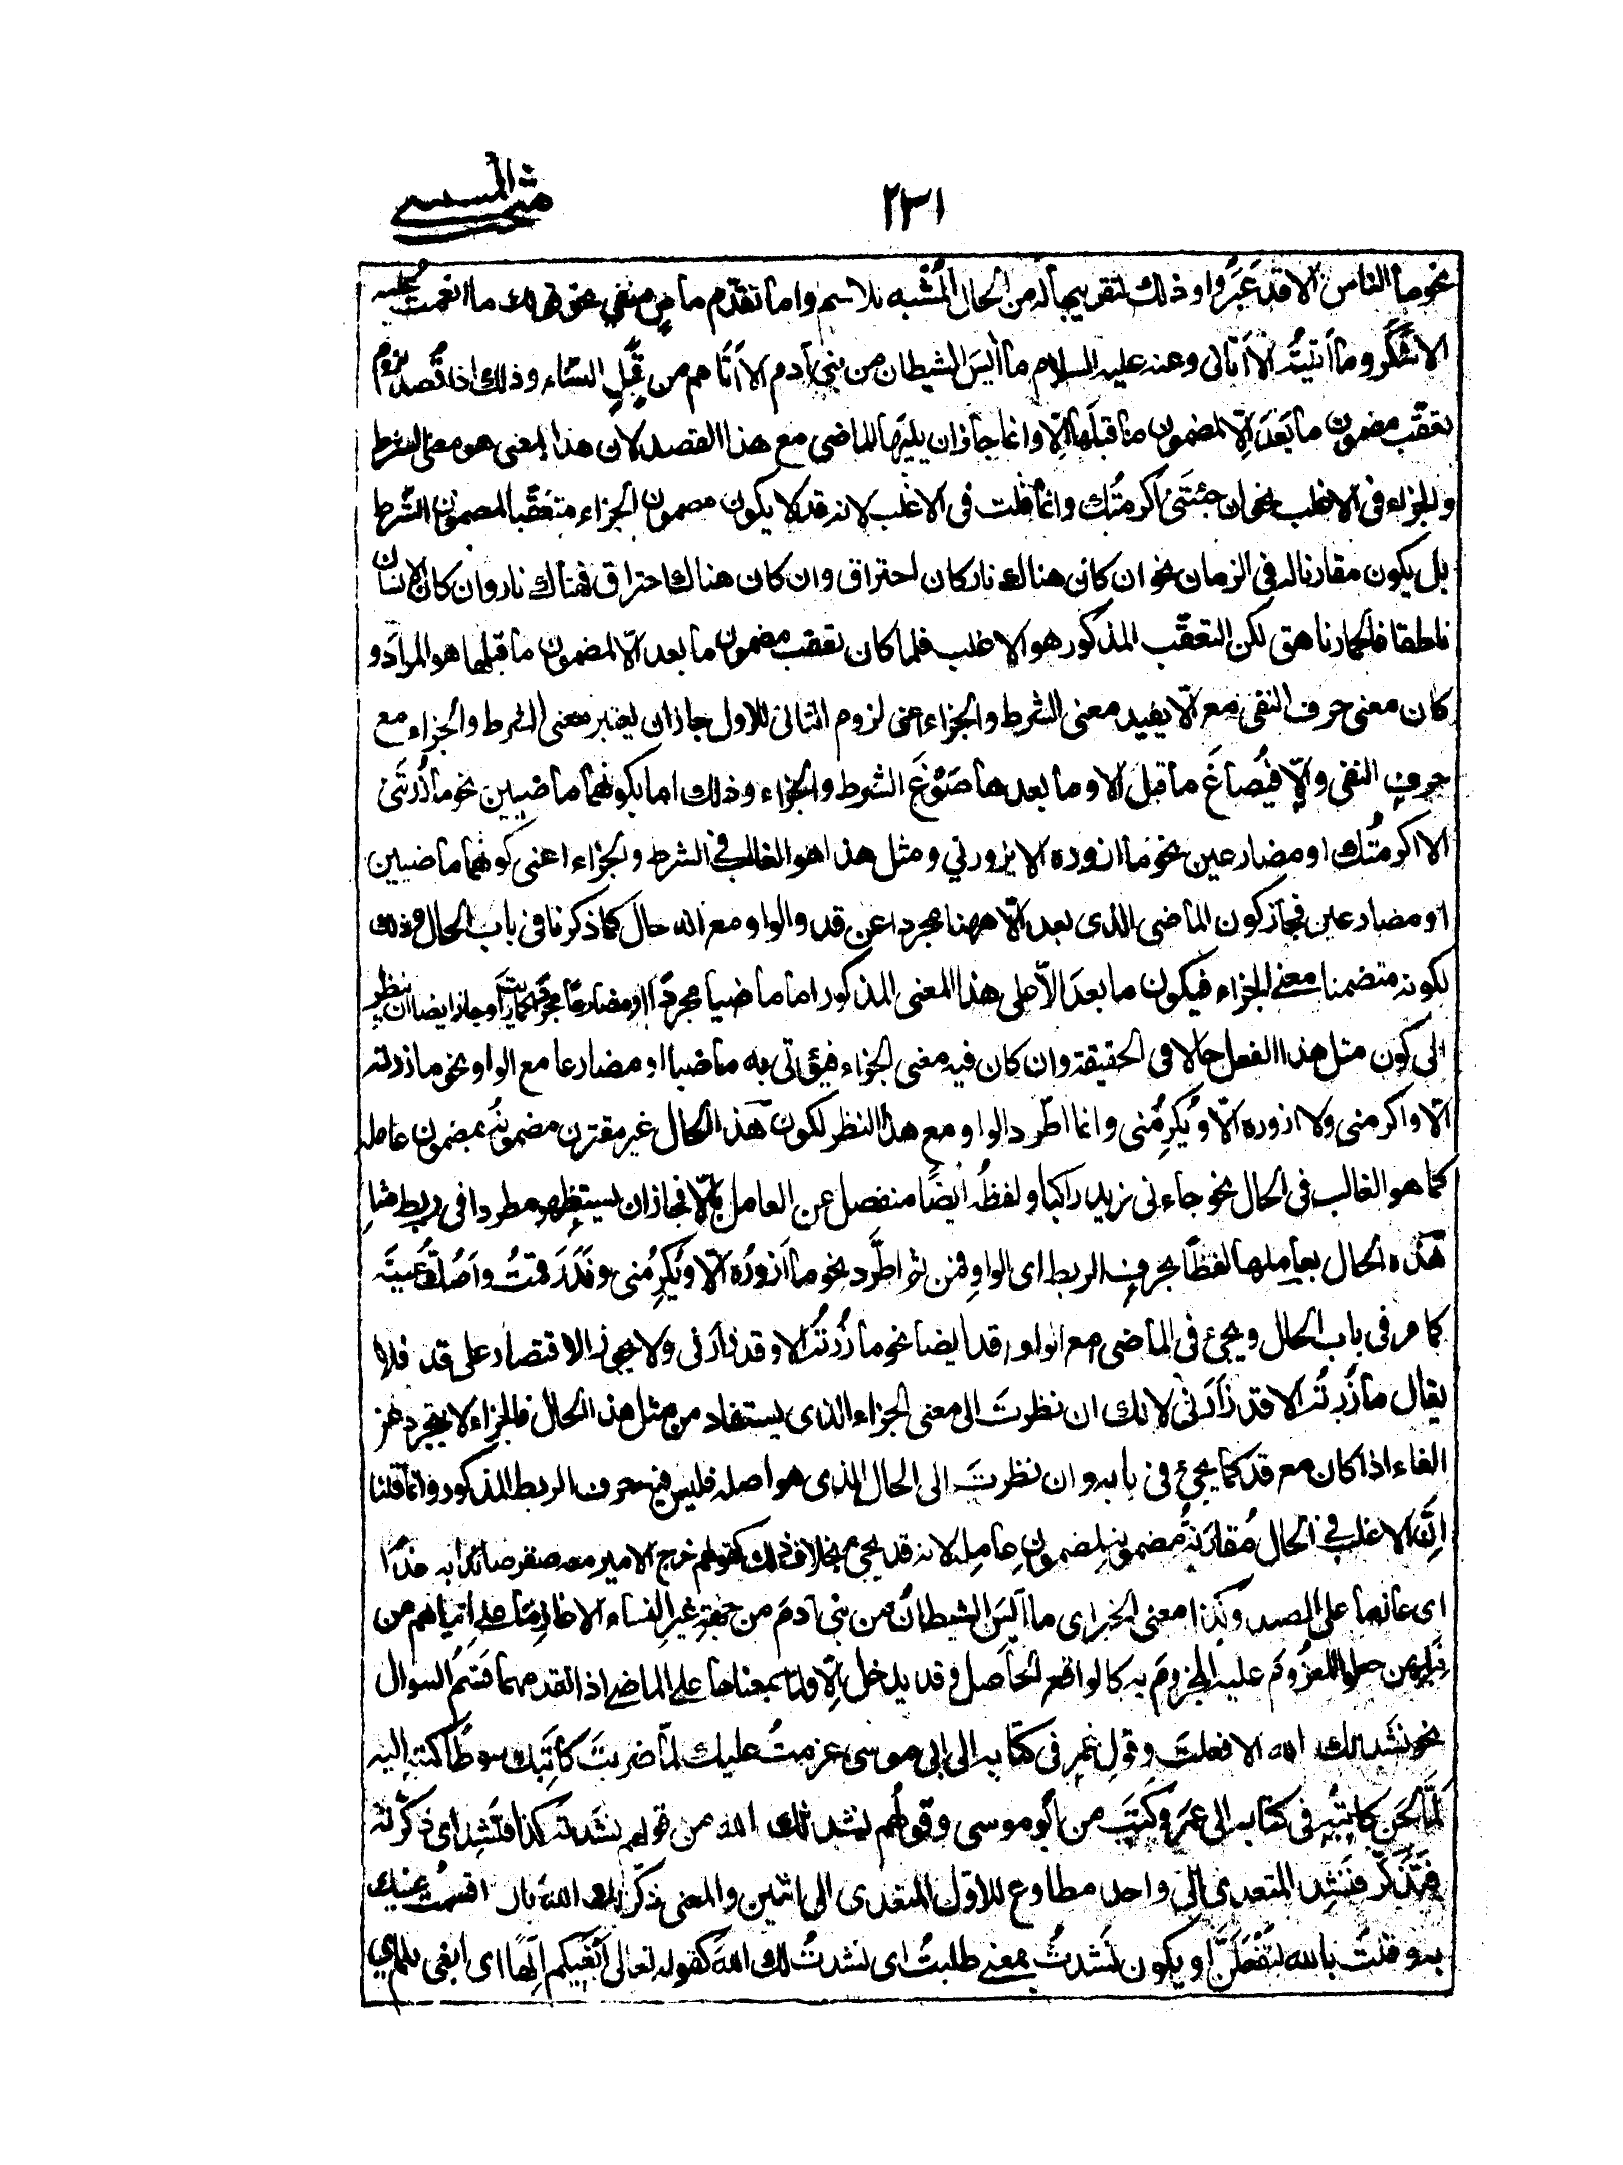 ٢٣١
المستثنى
نحو ما الناس الا قد عَبَرُوا وذلك لتقريبها له من الحال المُشْبه للاسم واما تقدّم ماضٍ منفي نحو قولك ما انعمت عليه
الا شَكَر وما أتيتُه الا أتانى وعنه عليه السلام ما أيِسَ الشيطان من بنى آدم الا أتاهم من قِبَلِ النساء وذلك اذا قُصد لزوم
تعقّب مضمون ما بَعدَ الّا لمضمون ما قبلَها وانما جاز ان يليَها الماضى مع هذا القصد لان هذا المعنى هو معنى الشرط
والجزاء فى الاغلب نحو ان جئتَنى اكرمتُك وانما قلت فى الاغلب لانه قد لا يكون مضمون الجزاء متعقّبا لمضمون الشرط
بل يكون مقارنا له فى الزمان نحو ان كان هناك نار كان احتراق وان كان هناك احتراق فهناك نار وان كان الانسان
ناطقا فالحمار ناهق لكن التعقّب المذكور هو الاغلب فلما كان تعقب مضمون ما بعد الّا لمضمون ما قبلها هو المراد و
كان معنى حرف النفى مع الّا يفيد معنى الشرط والجزاء اعنى لزوم الثانى للاول جاز ان يعتبر معنى الشرط والجزاء مع
حرف النفى والّا فيُصاغَ ما قبل الا وما بعدها صَوْغَ الشرط والجزاء وذلك اما بكونهما ماضيين نحو ما زُرتَنى
الا اكرمتُك او مضارعين نحو ما ازوره الا يزورني ومثل هذا هو الغالب فى الشرط والجزاء اعنى كونهما ماضيين
او مضارعين فجاز كون الماضى الذى بعد الّا ههنا مجردا عن قد والواو مع انه حال كما ذكرنا فى باب الحال وذلك
لكونه متضمنا معنى الجزاء فيكون ما بعد الّا على هذا المعنى المذكور اما ماضيا مجردا او مضارعا مجردا كما رايت وجاز ايضا ان ينظر
الى كون مثل هذا الفعل حالا فى الحقيقة وان كان فيه معنى الجزاء فيؤتى به ماضيا او مضارعا مع الواو نحو ما زرته
الّا واكرمنى ولا ازوره الّا ويُكرِمُنى وانما اطّرد الواو مع هذا النظر لكون هذا الحال غير مقترن مضمونُه بمضمون عامله
كما هو الغالب فى الحال نحو جاءنى زيد راكبا ولفظُه ايضًا منفصل عن العامل بالّا فجاز ان يستظهر مطردا فى ربط مثل
هذه الحال بعاملها لفظًا بحرف الربط اى الواو فمن ثم اطّرد نحو ما ازورُه الّا ويُكرِمُنى وندر قمتُ واَصُكّ عينيَه
كما مر فى باب الحال ويجئ فى الماضى مع الواو قد ايضا نحو ما زُرتُه الا وقد زارنى ولا يجوز الاقتصار على قد فلا
يقال ما زُرتُه الا قد زارنى لانك ان نظرتَ الى معنى الجزاء الذى يستفاد من مثل هذا الحال فالجزاء لا يتجرد عن
الفاء اذا كان مع قد كما يجئ فى بابه وان نظرتَ الى الحال الذى هو اصله فليس فيه حرف الربط المذكور وانما قلنا
انّ الاغلب فى الحال مُقارنةُ مضمونه لمضمون عامله لانه قد يجئ بخلاف ذلك كقولهم خرج الامير معه صقر صائدا به غدًا
اى عازما على الصيد وكذا معنى الخبر اى ما أيِسَ الشيطانُ من بنى آدمَ من جهةِ غيرِ النساء الا عازمًا على اتيانهم من
قبلهن جعل المعزومَ عليه المجزومَ به كالواقع الحاصل وقد يدخل الّا ولمّا بمعناها على الماضى اذا تقدمهما قَسَمُ السوال
نحو نشدتك الله الا فعلتَ وقولِ عمر فى كتابه الى ابى موسى عزمتُ عليك لمّا ضربتَ كاتبَك سوطًا كتبه اليه
لمّا لَحَن كاتبُه فى كتابه الى عمر وكَتَبَ من ابو موسى وقولُهم نشدتك الله من قولهم نشدتُه كذا فنَشِد اى ذكّرته
فتَذَكّر فنَشِد المتعدى الى واحد مطاوع للاول المتعدى الى اثنين والمعنى ذكّرتك الله بان اقسمتُ عليك
به وقلتُ بالله لتَفْعلنّ او يكون نَشَدتُ بمعنى طلبتُ اى نشدتُ لك اللهَ كقوله تعالى أبغيكم الهًا اى ابغى لكم اى